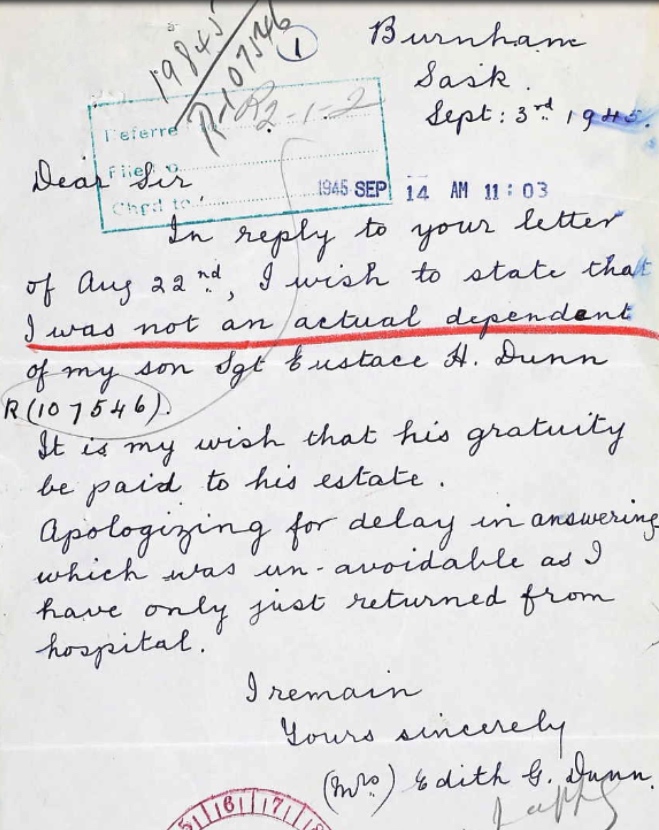 19843
R-107546
1
Burnham
Sask.
Sept: 3rd 1945.
R2-1-2
Referre
Filed
Chgd to
1945 SEP 14 AM 11:03
Dear Sir
In reply to your letter
of Aug 22nd, I wish to state that
I was not an actual dependent
of my son Sgt Eustace H. Dunn
R(107546).
It is my wish that his gratuity
be paid to his estate.
Apologizing for delay in answering
which was un-avoidable as I
have only just returned from
hospital.
I remain
Yours sincerely
(Mrs) Edith G. Dunn.
5 16 17 18